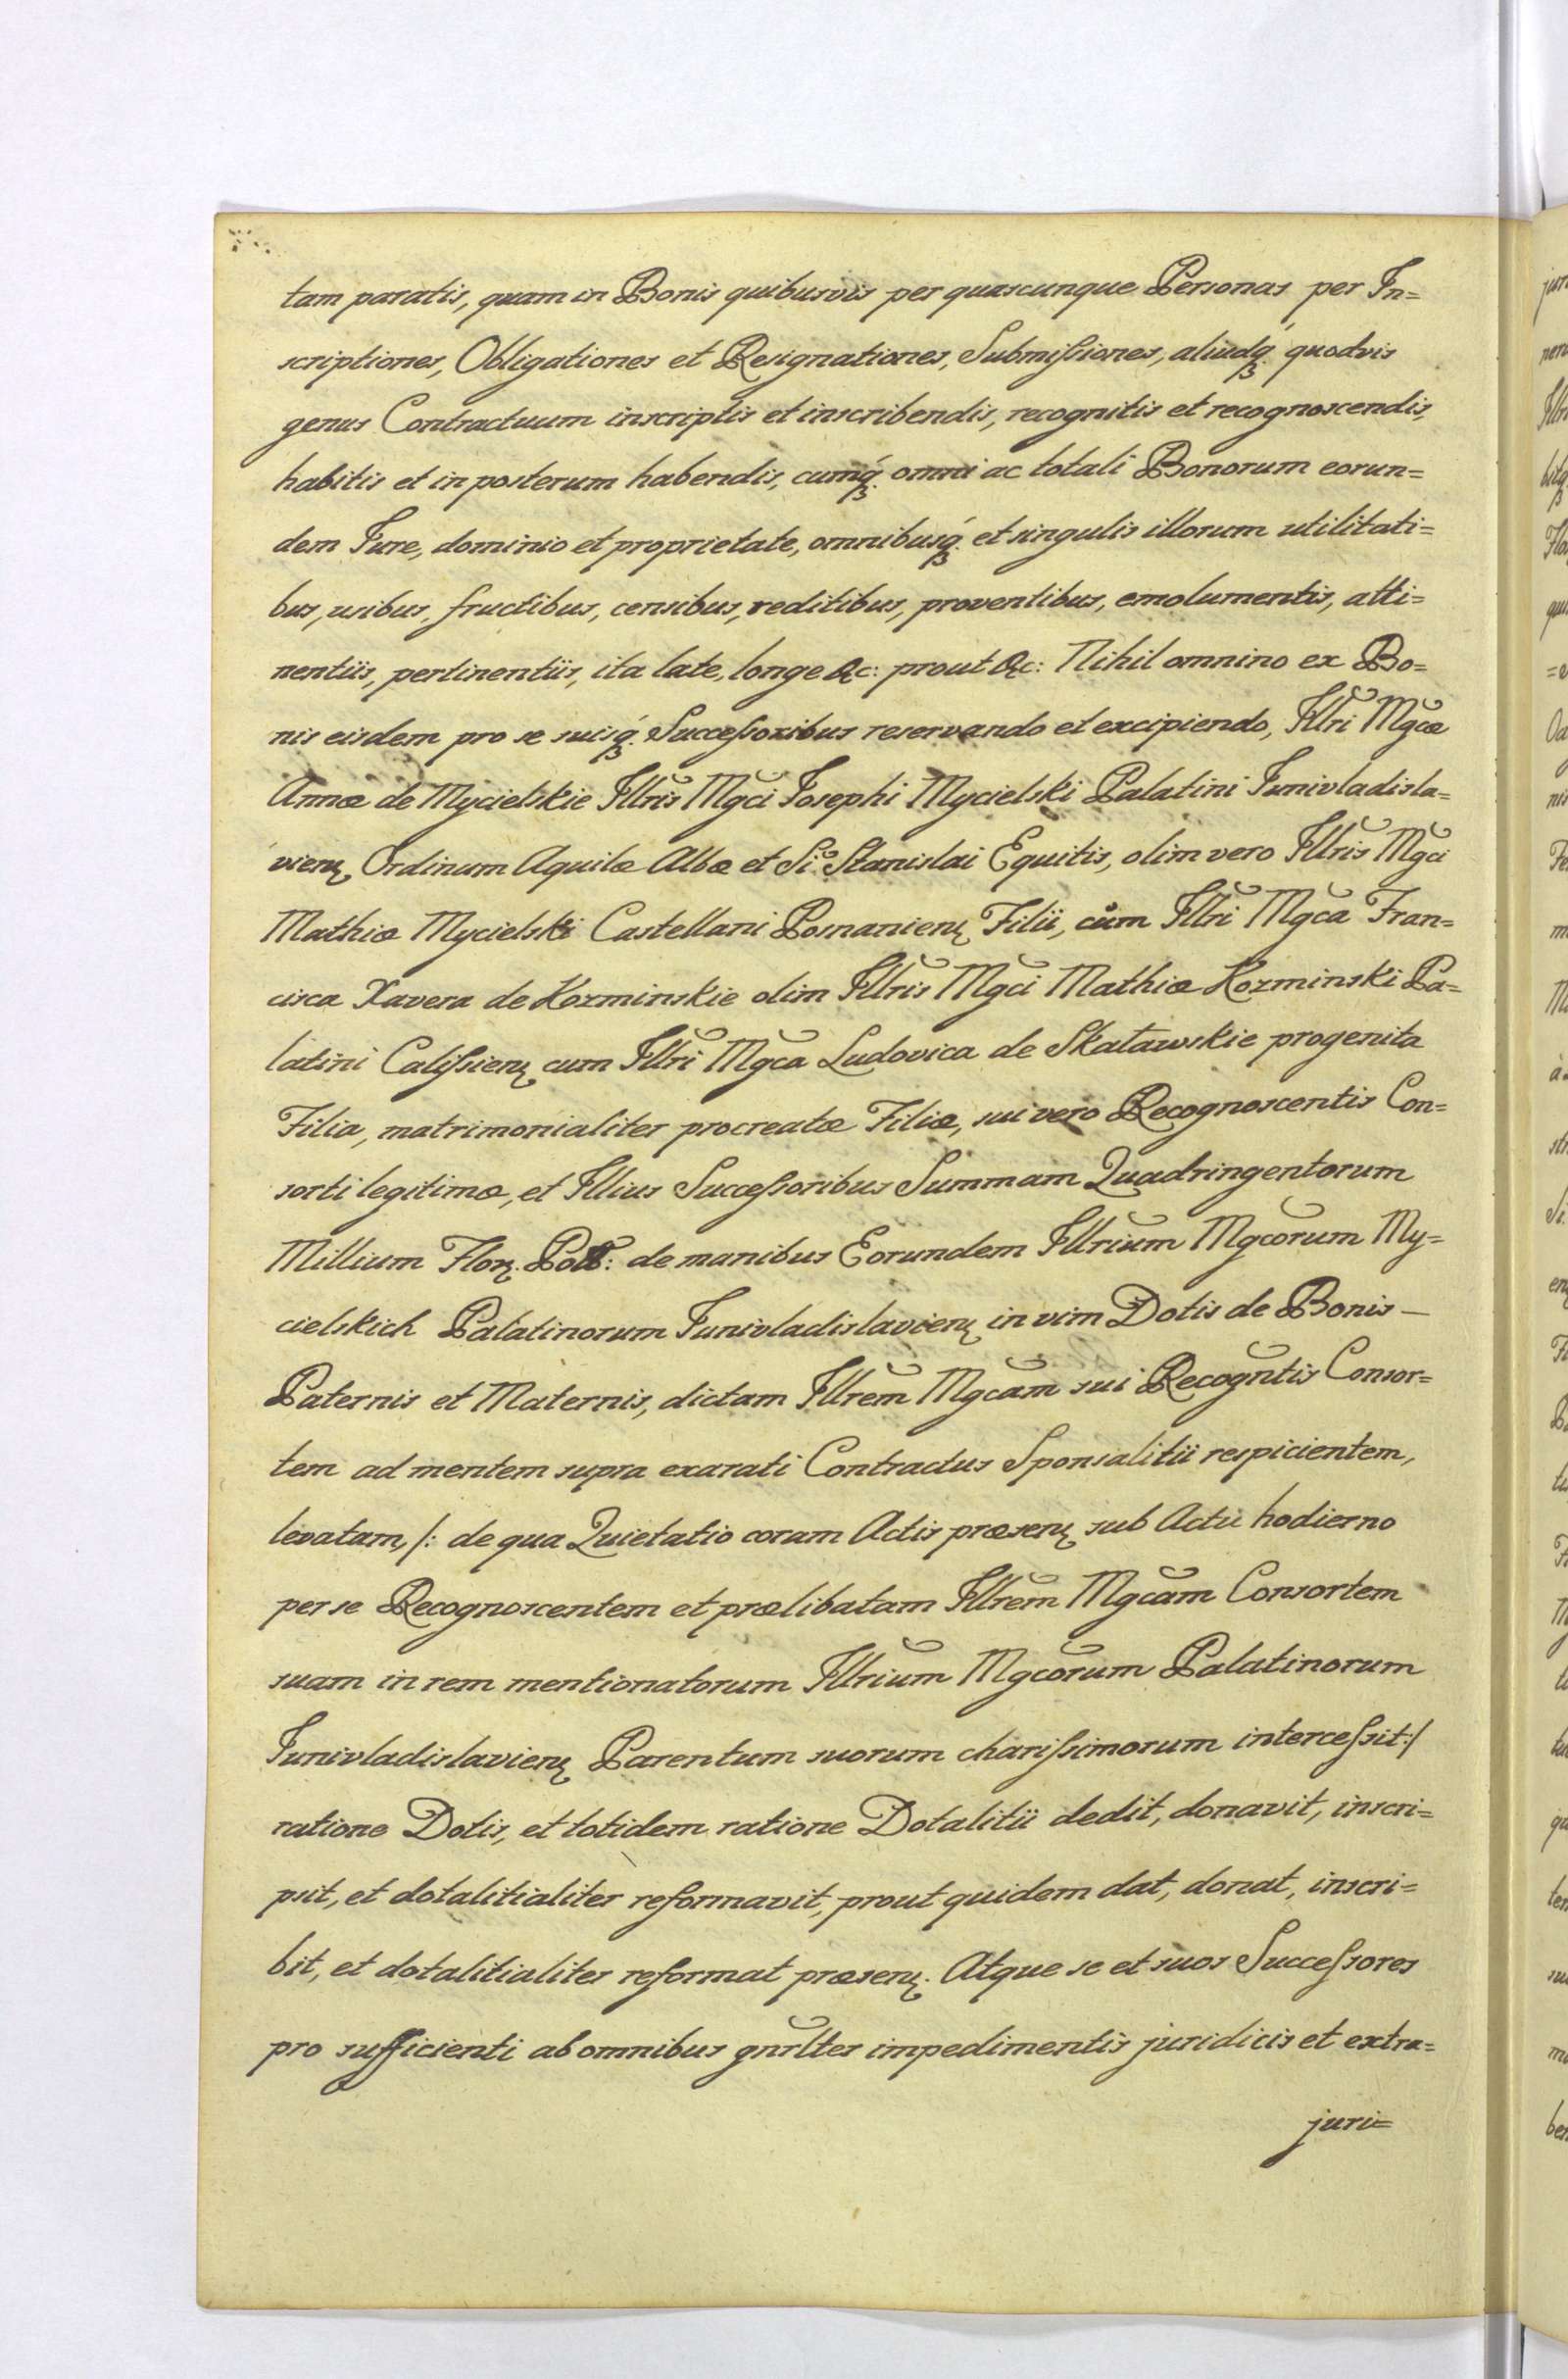 tam paratis, quam in Bonis quibusvis per quascunque Personas per In=
scriptiones, Obligationes et Resignationes, Submißiones, aliudq́ꝫ quodvis
genus Contractuum inscriptis et inscribendis, recognitis et recognoscendis,
habitis et in posterum habendis, cumq́ꝫ omni ac totali Bonorum eorun=
dem Jure, dominio et proprietate, omnibusq́ꝫ et singulis illorum utilitati=
bus, usibus, fructibus, censibus, reditibus, proventibus, emolumentis, atti=
nentiis, pertinentiis, ita late, longe &c: prout &c: Nihil omnino ex Bo=
nis eisdem pro se suisq́ꝫ Succeßoribus reservando et excipiendo, Illri Mgcæ
Annæ de Mycielskie Illris Mgci Josephi Mycielski Palatini Junivladisla=
vienꝫ Ordinum Aquilæ Albæ et Si Stanislai Equitis, olim vero Illris Mgci
Mathiæ Mycielski Castellani Posnanienꝫ Filii, cum Illri Mgca Fran=
cisca Xavera de Kozminskie olim Illris Mgci Mathiæ Kozminski Pa=
latini Calißienꝫ cum Illri Mgca Ludovica de Skatawskie progenita
Filia, matrimonialiter procreatæ Filiæ, sui vero Recognoscentis Con=
sorti legitimæ, et Illius Succeßoribus Summam Quadringentorum
Millium Florꝫ. Poll: de manibus Eorundem Illrium Mgcorum My=
cielskich Palatinorum Junivladislavienꝫ in vim Dotis de Bonis —
Paternis et Maternis, dictam Illrem Mgcam sui Recogntis Consor=
tem ad mentem supra exarati Contractus Sponsalitii respicientem,
levatam, /: de qua Quietatio coram Actis præsenꝫ sub Actu hodierno
per se Recognoscentem et prælibatam Illrem Mgcam Consortem
suam in rem mentionatorum Illrium Mgcorum Palatinorum
Junivladislavienꝫ Parentum suorum charißimorum interceßit:/
ratione Dotis, et totidem ratione Dotalitii dedit, donavit, inscri=
psit, et dotalitialiter reformavit, prout quidem dat, donat, inscri=
bit, et dotalitialiter reformat præsenꝫ. Atque se et suos Succeßores
pro sufficienti ab omnibus gnrlter impedimentis juridicis et extra=
juri=